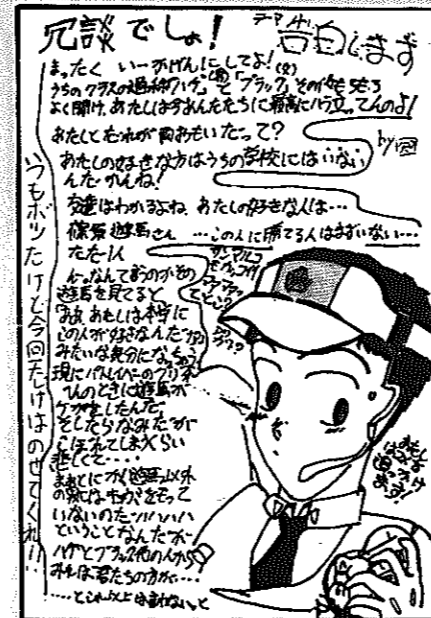 冗談でしょ!
テーマ 告白します
まったく いーかげんにしてよ!
うちのクラスの過 ハゲ と ブラック その他もろもろ
よく聞け、あたしは今あんたたちに最高にハラ立ってんのよ!
あたしとだれが両おもいだって?
あたしの好きな方はうちの学校にはいない
んだかんね!
友達はわかるよね、あたしの好きな人は…
篠原遊馬さん …この人に勝てる人はまずいない…
ただ一人
なんてゆうのかその
遊馬を見てると
ああ あたしは本当に
この人が好きなんだ
みたいな気分になっちゃう
現にパトレイバーの
んのときに遊馬が
ケガをしたんだ。
そしたらなみだが
こぼれてしまうくらい
悲しくて…
まあとにかく遊馬以外
の男には
いないのだハハハハ
ということなんだ
ハゲとブラック他の人から
君たちの方が…
……とこれ以上は言わないっと
いつもボツだけど今回だけはのせてくれ!!